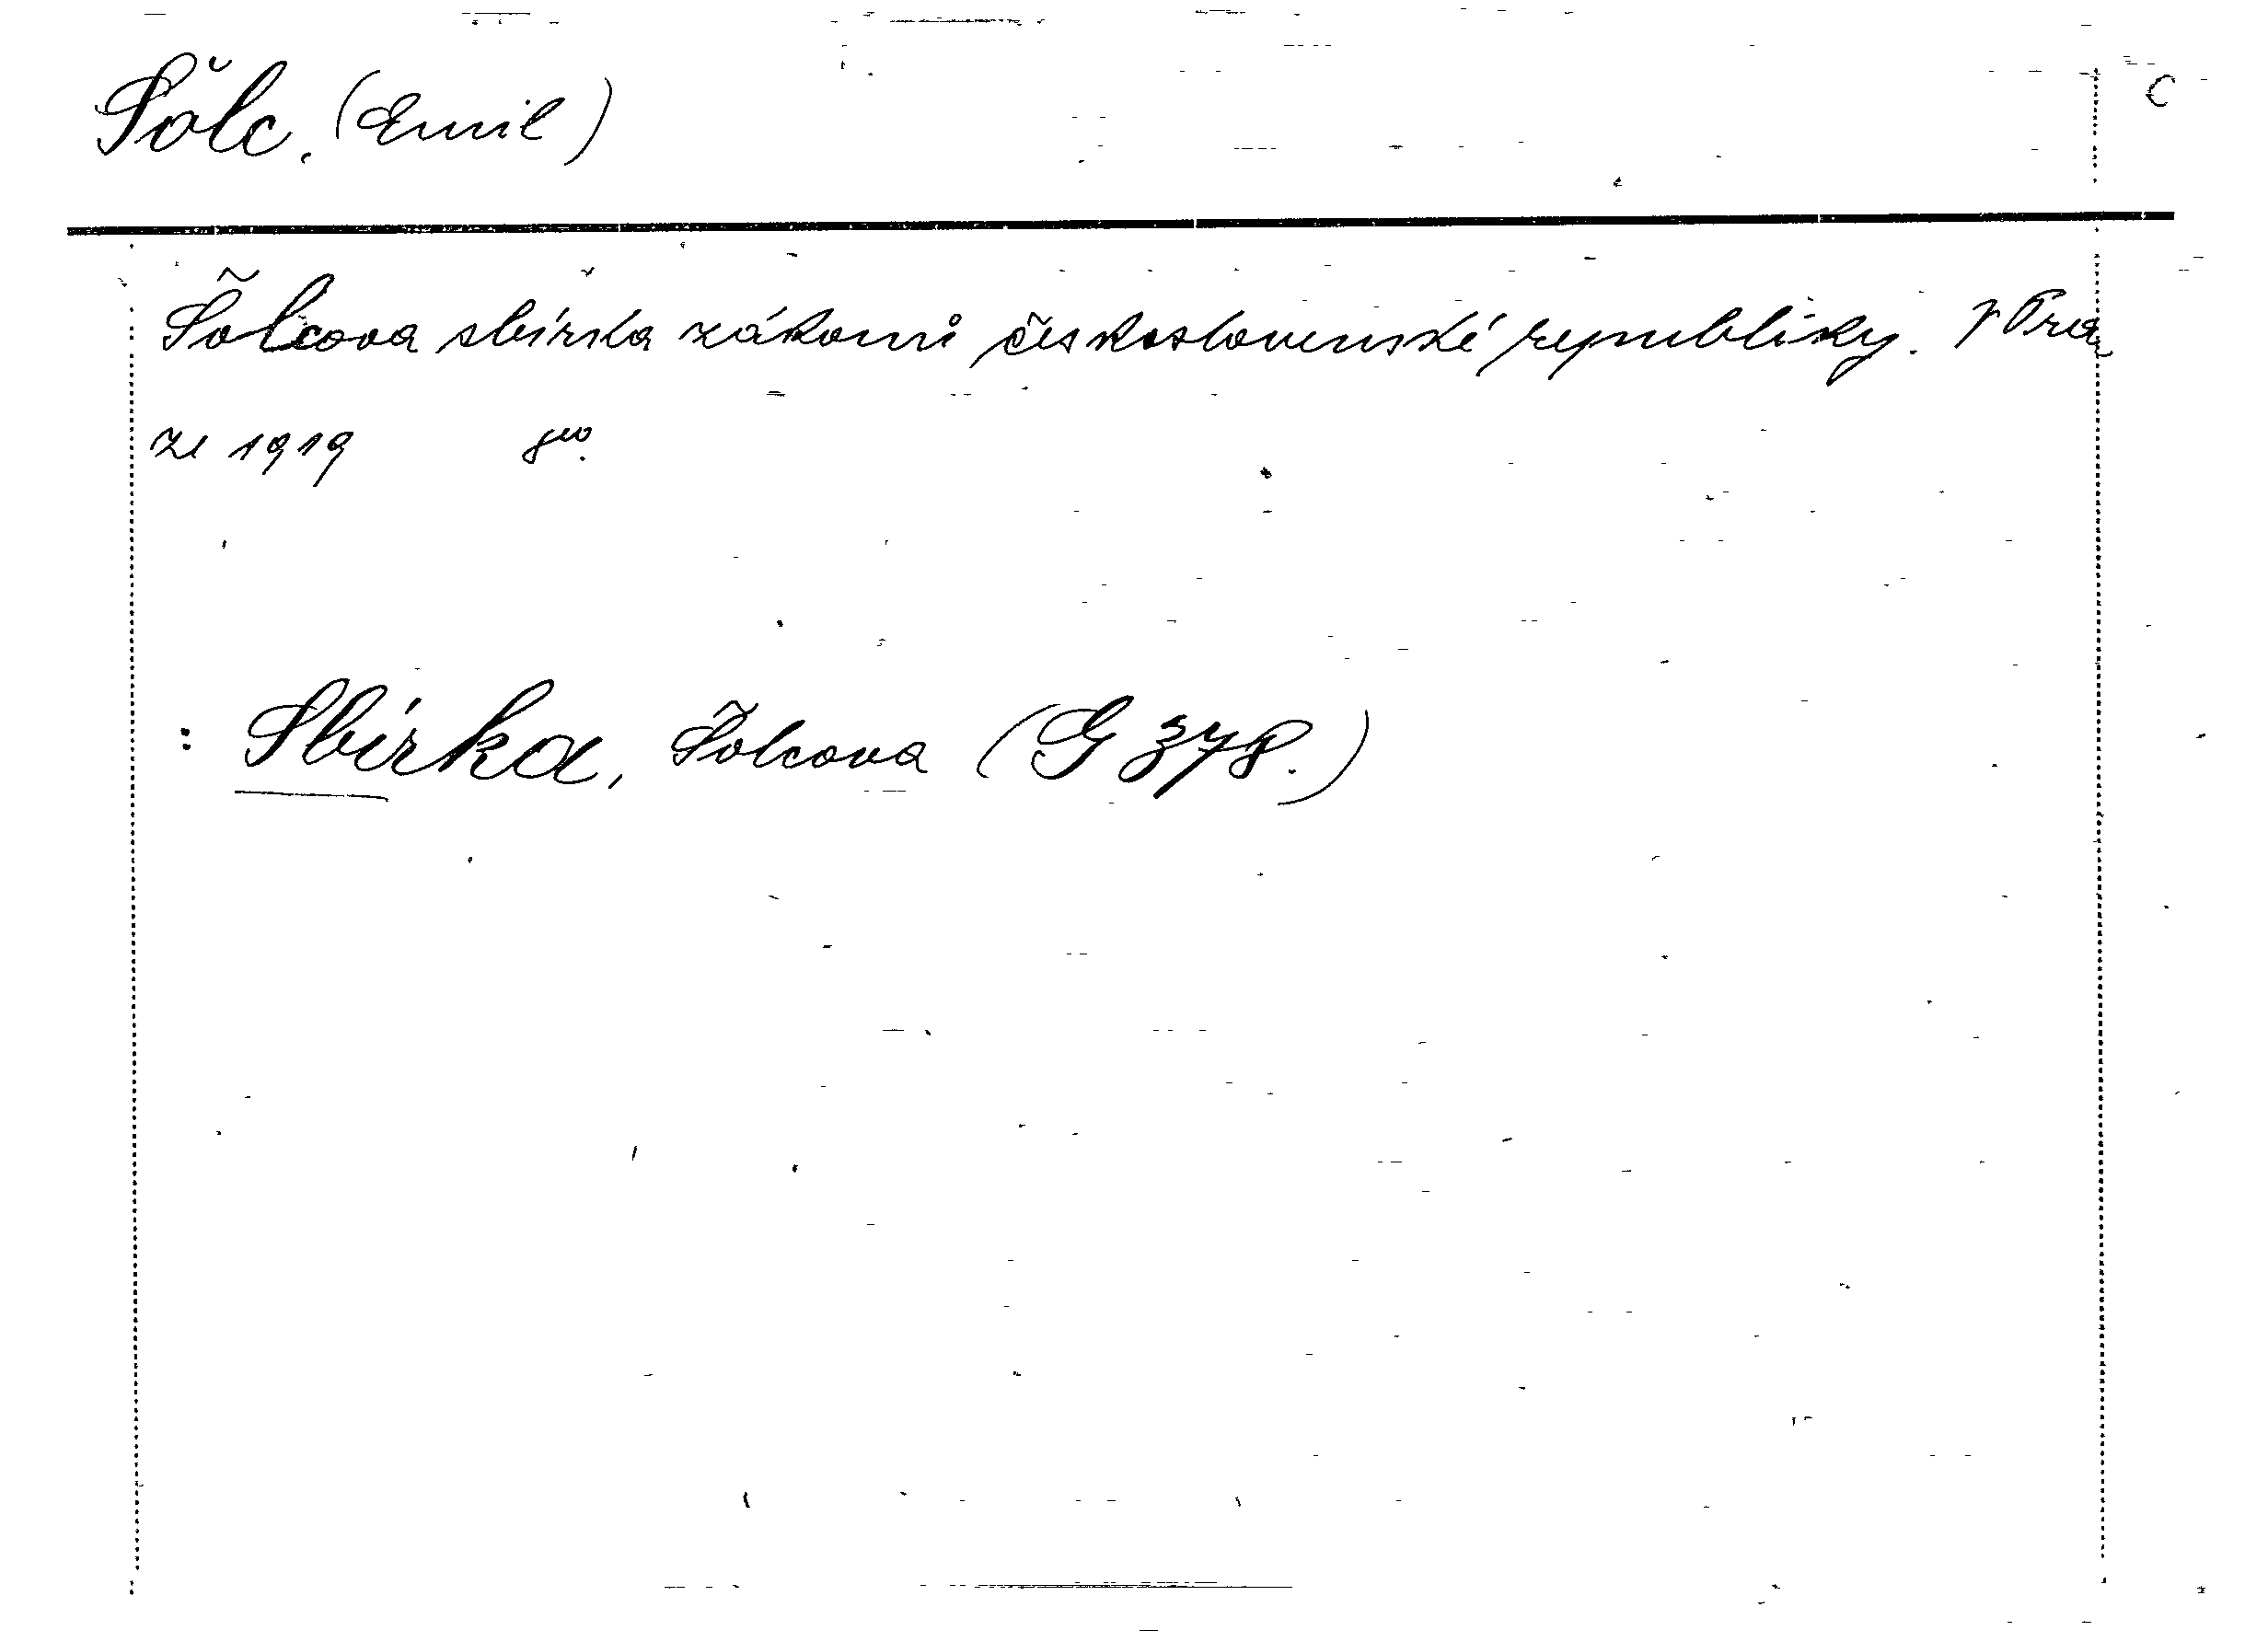 Šolc. (Emil)
C
Šolcova sbírka zákonů československé republiky. V Pra
ze 1919 8vo.
: Sbírka, Šolcova (G 378.)